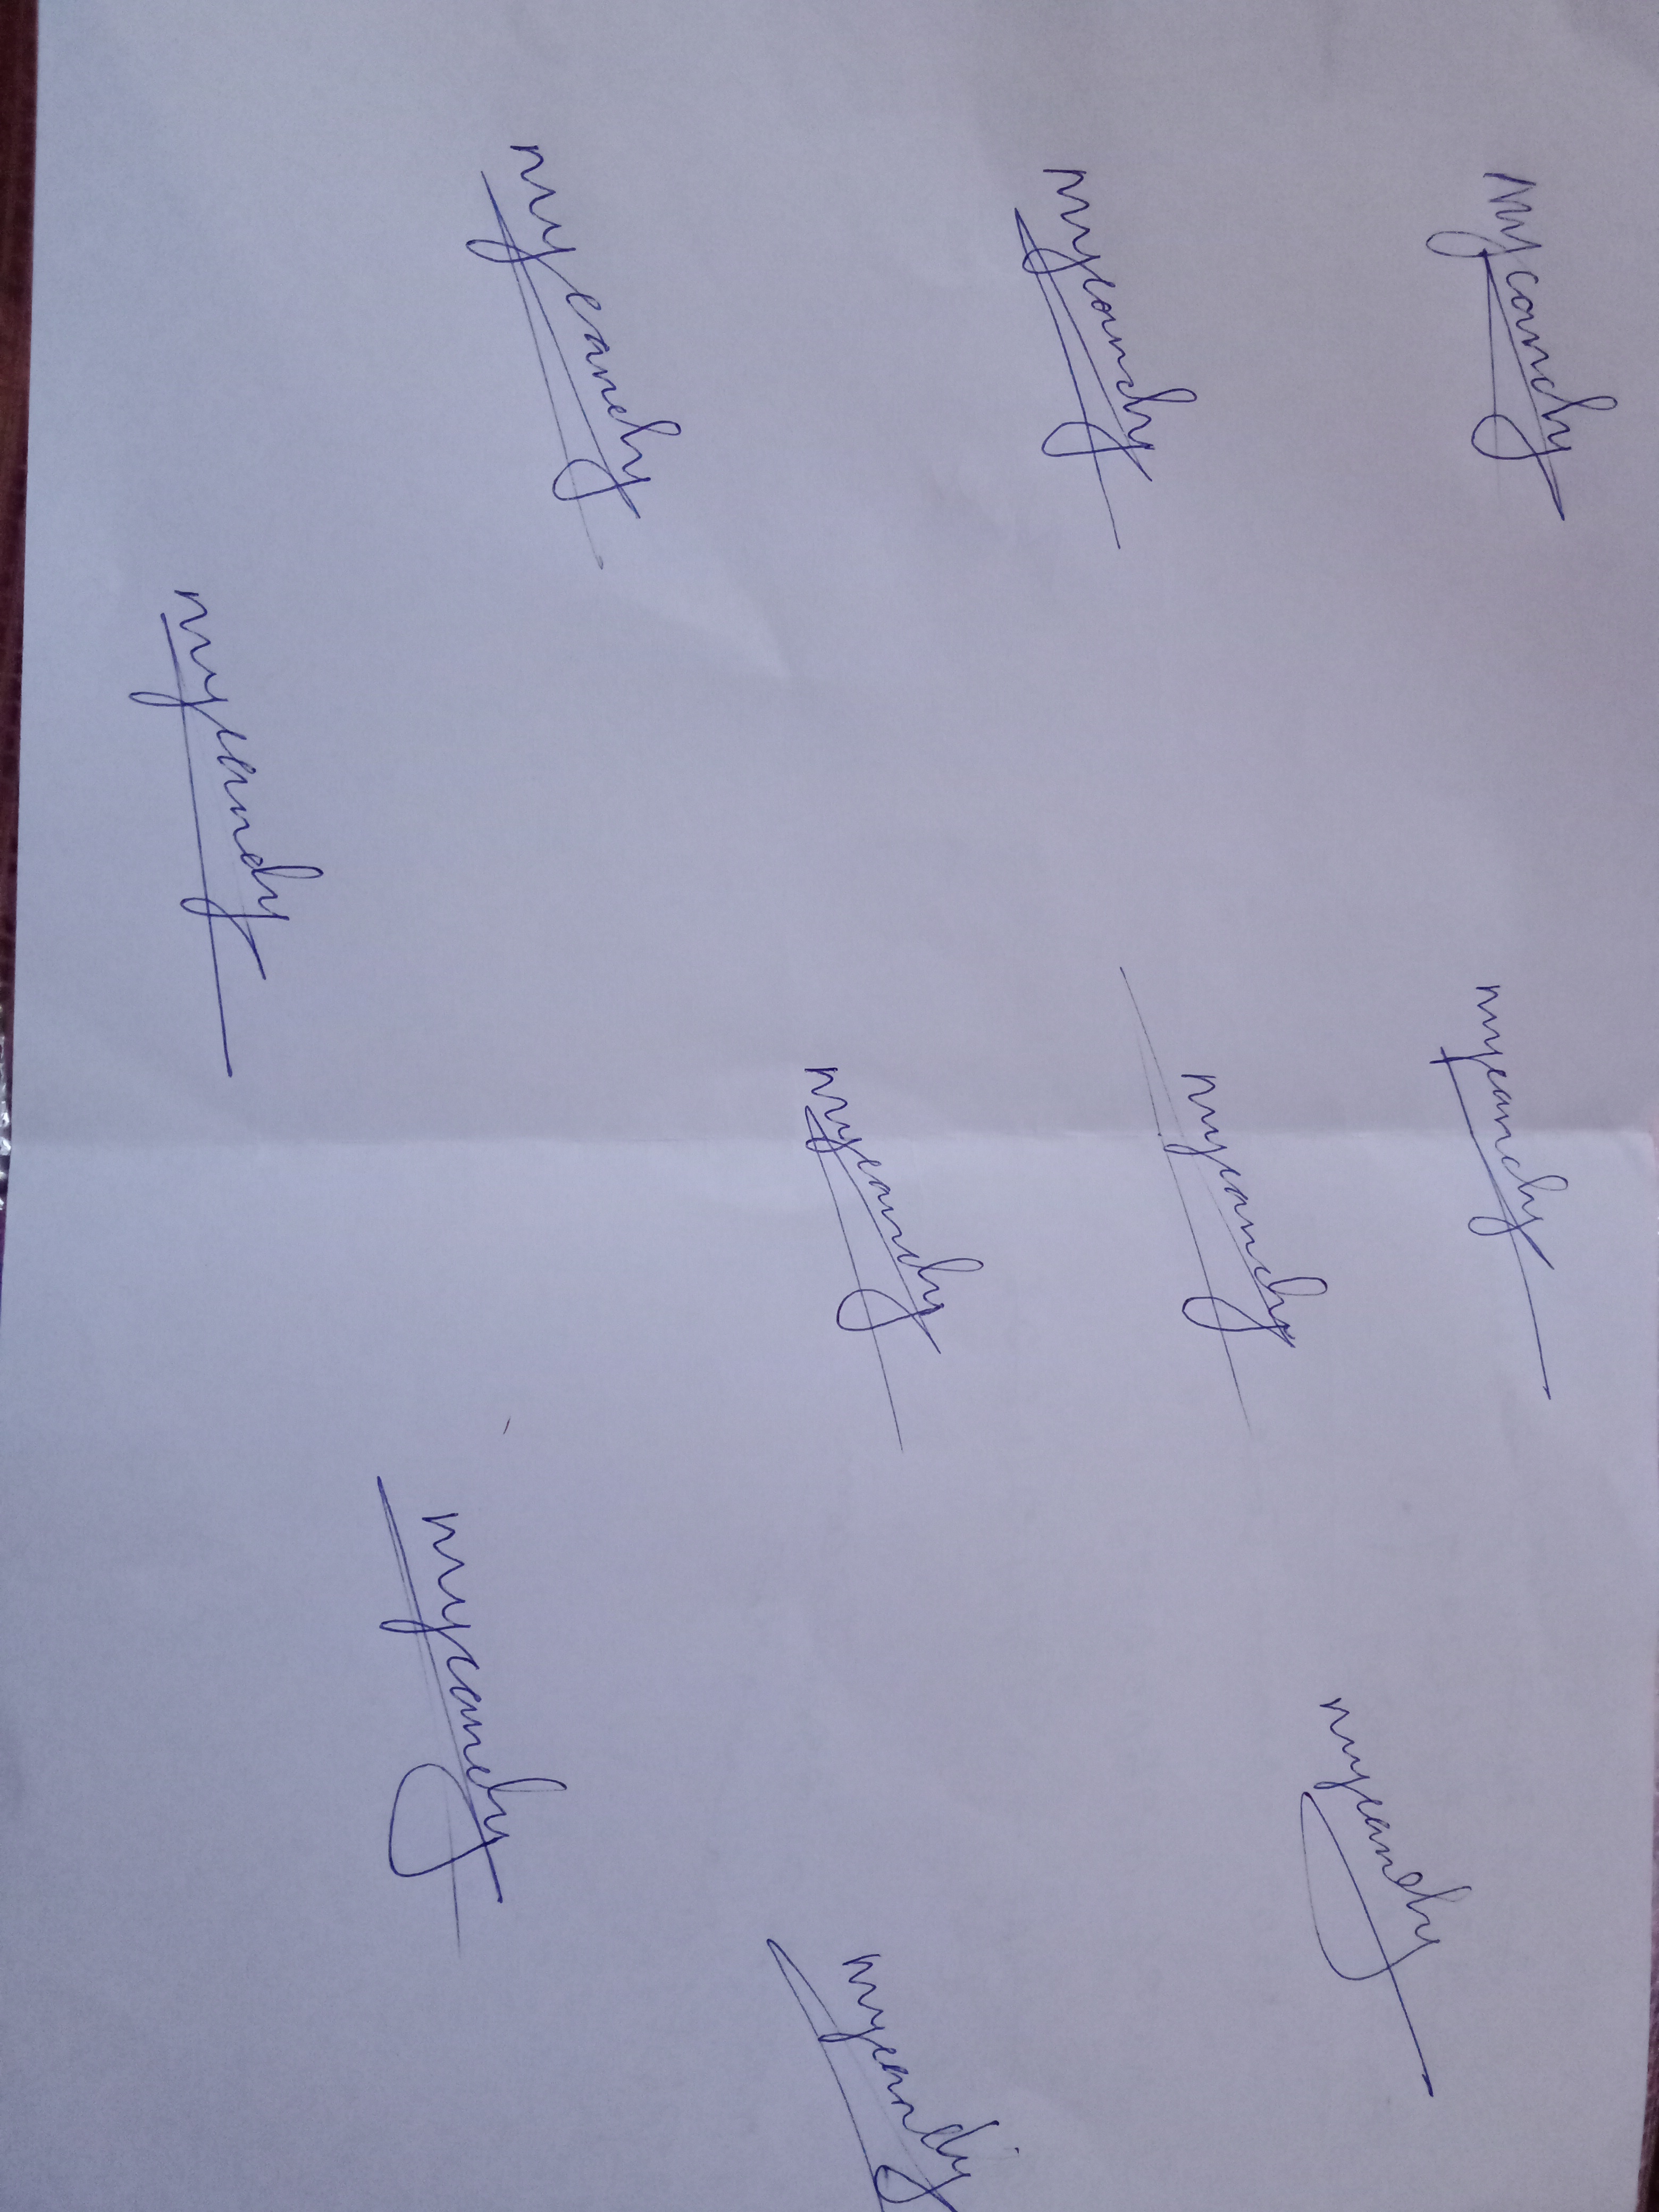 Mycandy mycandy mycandy
mycandy mycandy
mycandy mycandy
mycandy mycandy
mycandy